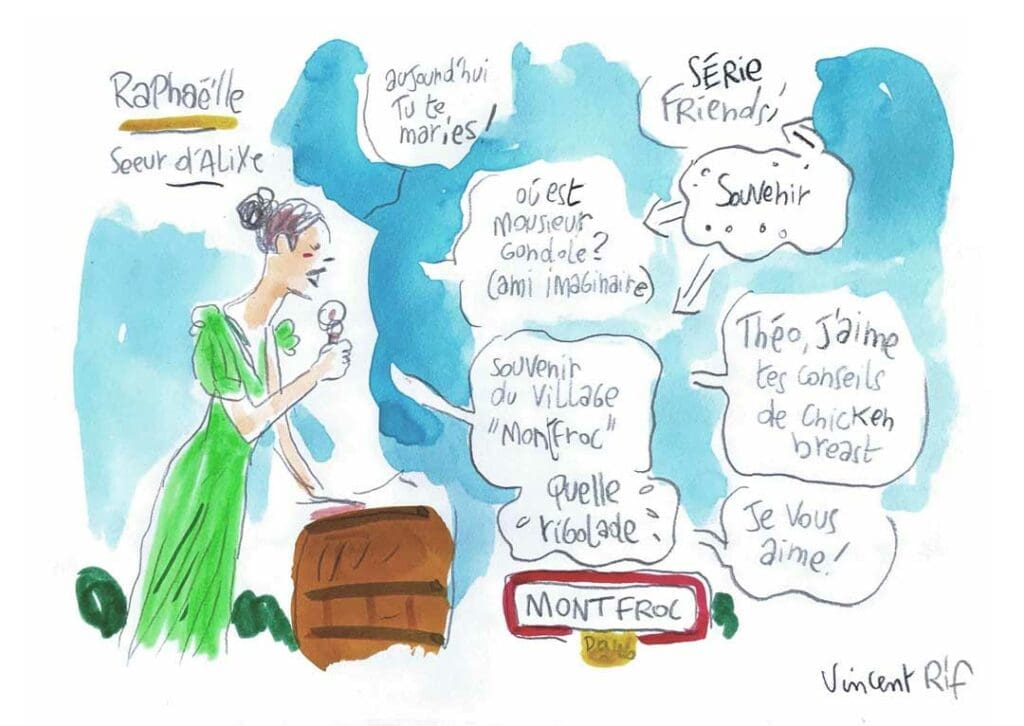 Raphaëlle
Soeur d'Alixe
aujourd'hui
Tu te
maries!
SÉRIE
Friends!
Souvenir
où est
Monsieur
Gondole?
(ami imaginaire)
Souvenir
du village
"Montfroc"
Quelle
rigolade!
Théo, J'aime
tes conseils
de chicken
breast
Je vous
aime!
MONTFROC
Vincent Rif